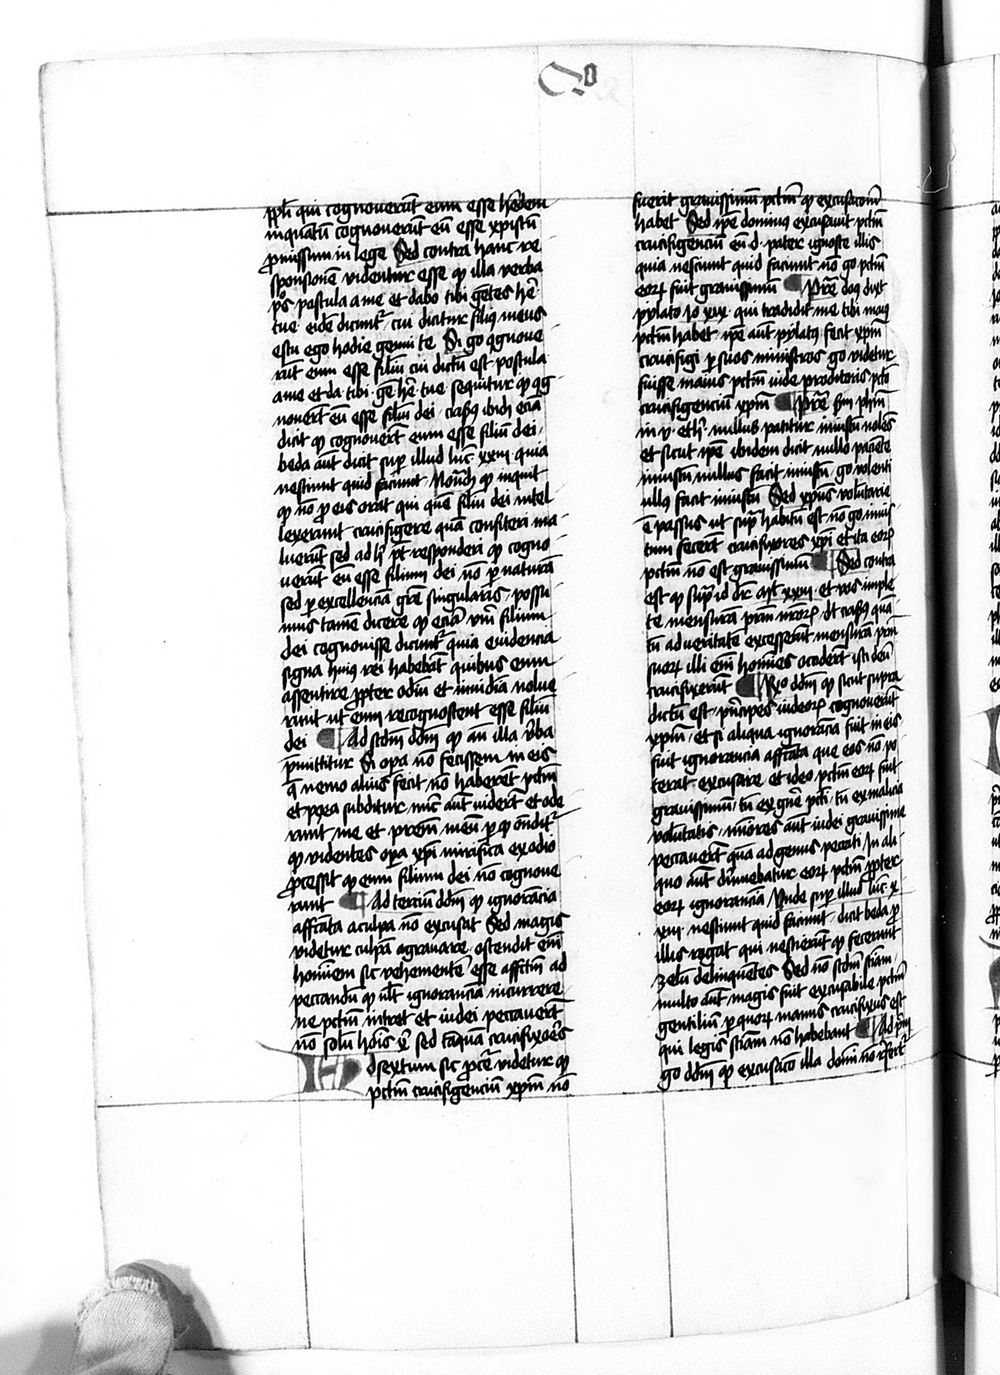 Qo
ppli qui cognoverunt eum esse heredem
inquantum cognoverunt eum esse xpistum
promissum in lege Sed contra hanc re
sponsionem videntur esse qp illa verba
ps postula a me et dabo tibi gentes here
tue eidem dicuntur cui dicitur filius meus
es tu ego hodie genui te Si go cognove
runt eum esse filium cui dictum est postula
a me et da tibi gen here tue sequitur qp cog
noverunt eum esse filium dei ibidem ecia
dicit qp cognoverunt eum esse filium dei
beda aut dicit super illud luc xxiii quia
nesciunt quid faciunt Notandum qp inquit
qp no pro eis orat qui quem filium dei intel
lexerant crucifigere quam confiteri ma
luerunt sed ad hoc pt responderi qp cogno
verunt eum esse filium dei no per naturam
sed per excellenciam gre singularis possu
mus tamen dicere qp ecia verum filium
dei cognovisse dicuntur quia evidencia
signa huius rei habebant quibus enim
assentire propter odium et invidiam nolue
runt ut eum recognoscerent esse filium
dei Ad scdm ddm qp an illa verba
premittitur Si opa no fecissem in eis
que nemo alius fecit no haberent pctm
et postea subditur nunc aut viderunt et ode
runt me et prem meum per qp onditur
qp videntes opa xpi mirifica ex odio
processit qp eum filium dei no cognove
runt Ad tercium ddm qp ignorancia
affectata a culpa no excusat Sed magis
videtur culpam agravare ostendit enim
hominem sic vehementer esse affectum ad
peccandum qp vult ignoranciam incurrere
ne pctm vitet et iudei peccaverunt
no solum hois xpi sed tanquam crucifixores
Ad sextum sic procedr videtur qp
pctm crucifigencium xpm no
fuerit gravissimum pctm qp excusacionem
habet Sed ipe dominus excusavit pctm
crucifigencium eum d. pater ignosce illis
quia nesciunt quid faciunt no go pctm
eorum fuit gravissimum Pre dos dixit
pylato Jo xix qui tradidit me tibi maius
pctm habet ipe aut pylatus fecit xpm
crucifigi per suos ministros go videtur
fuisse maius pctm iude proditoris pcto
crucifigencium xpm Pre scdm phm
in v ethi nullus patitur iniustum volens
et sicut ipe ibidem dicit nullo paciente
iniustum nullus facit iniustum go volenti
nullus facit iniustum Sed xpus voluntarie
e passus ut supra habitum est no go inius
tum fecerunt crucifixores xpi et ita eorum
pctm no est gravissimum Sed contra
est qp super id dic mat xxiii et vos imple
te mensuram patrum vestrorum dt crisostomus quan
tum ad veritatem excesserunt mensuram patrum
suorum illi enim homines occiderunt isti deum
crucifixerunt Rndeo ddm qp sicut supra
dictum est principes iudeorum cognoverunt
xpm et si aliqua ignorancia fuit in eis
fuit ignorancia affectata que eos no po
terat excusare et ideo pctm eorum fuit
gravissimum tum ex genere pcti tum ex malicia
voluntatis minores aut iudei gravissime
peccaverunt quantum ad genus peccati In ali
quo aut diminuebatur eorum pctm propter
eorum ignoranciam Unde super illud luc x
xiii nesciunt quid faciunt dicit beda pro
illis rogat qui nescierunt qp fecerunt
zelum delinquentes Sed no scdm sciam
multo aut magis fuit excusabile pctm
gentilium per quorum manus crucifixus est
qui legis sciam no habebant Ad prim
go ddm qp excusacio illa domini no refert